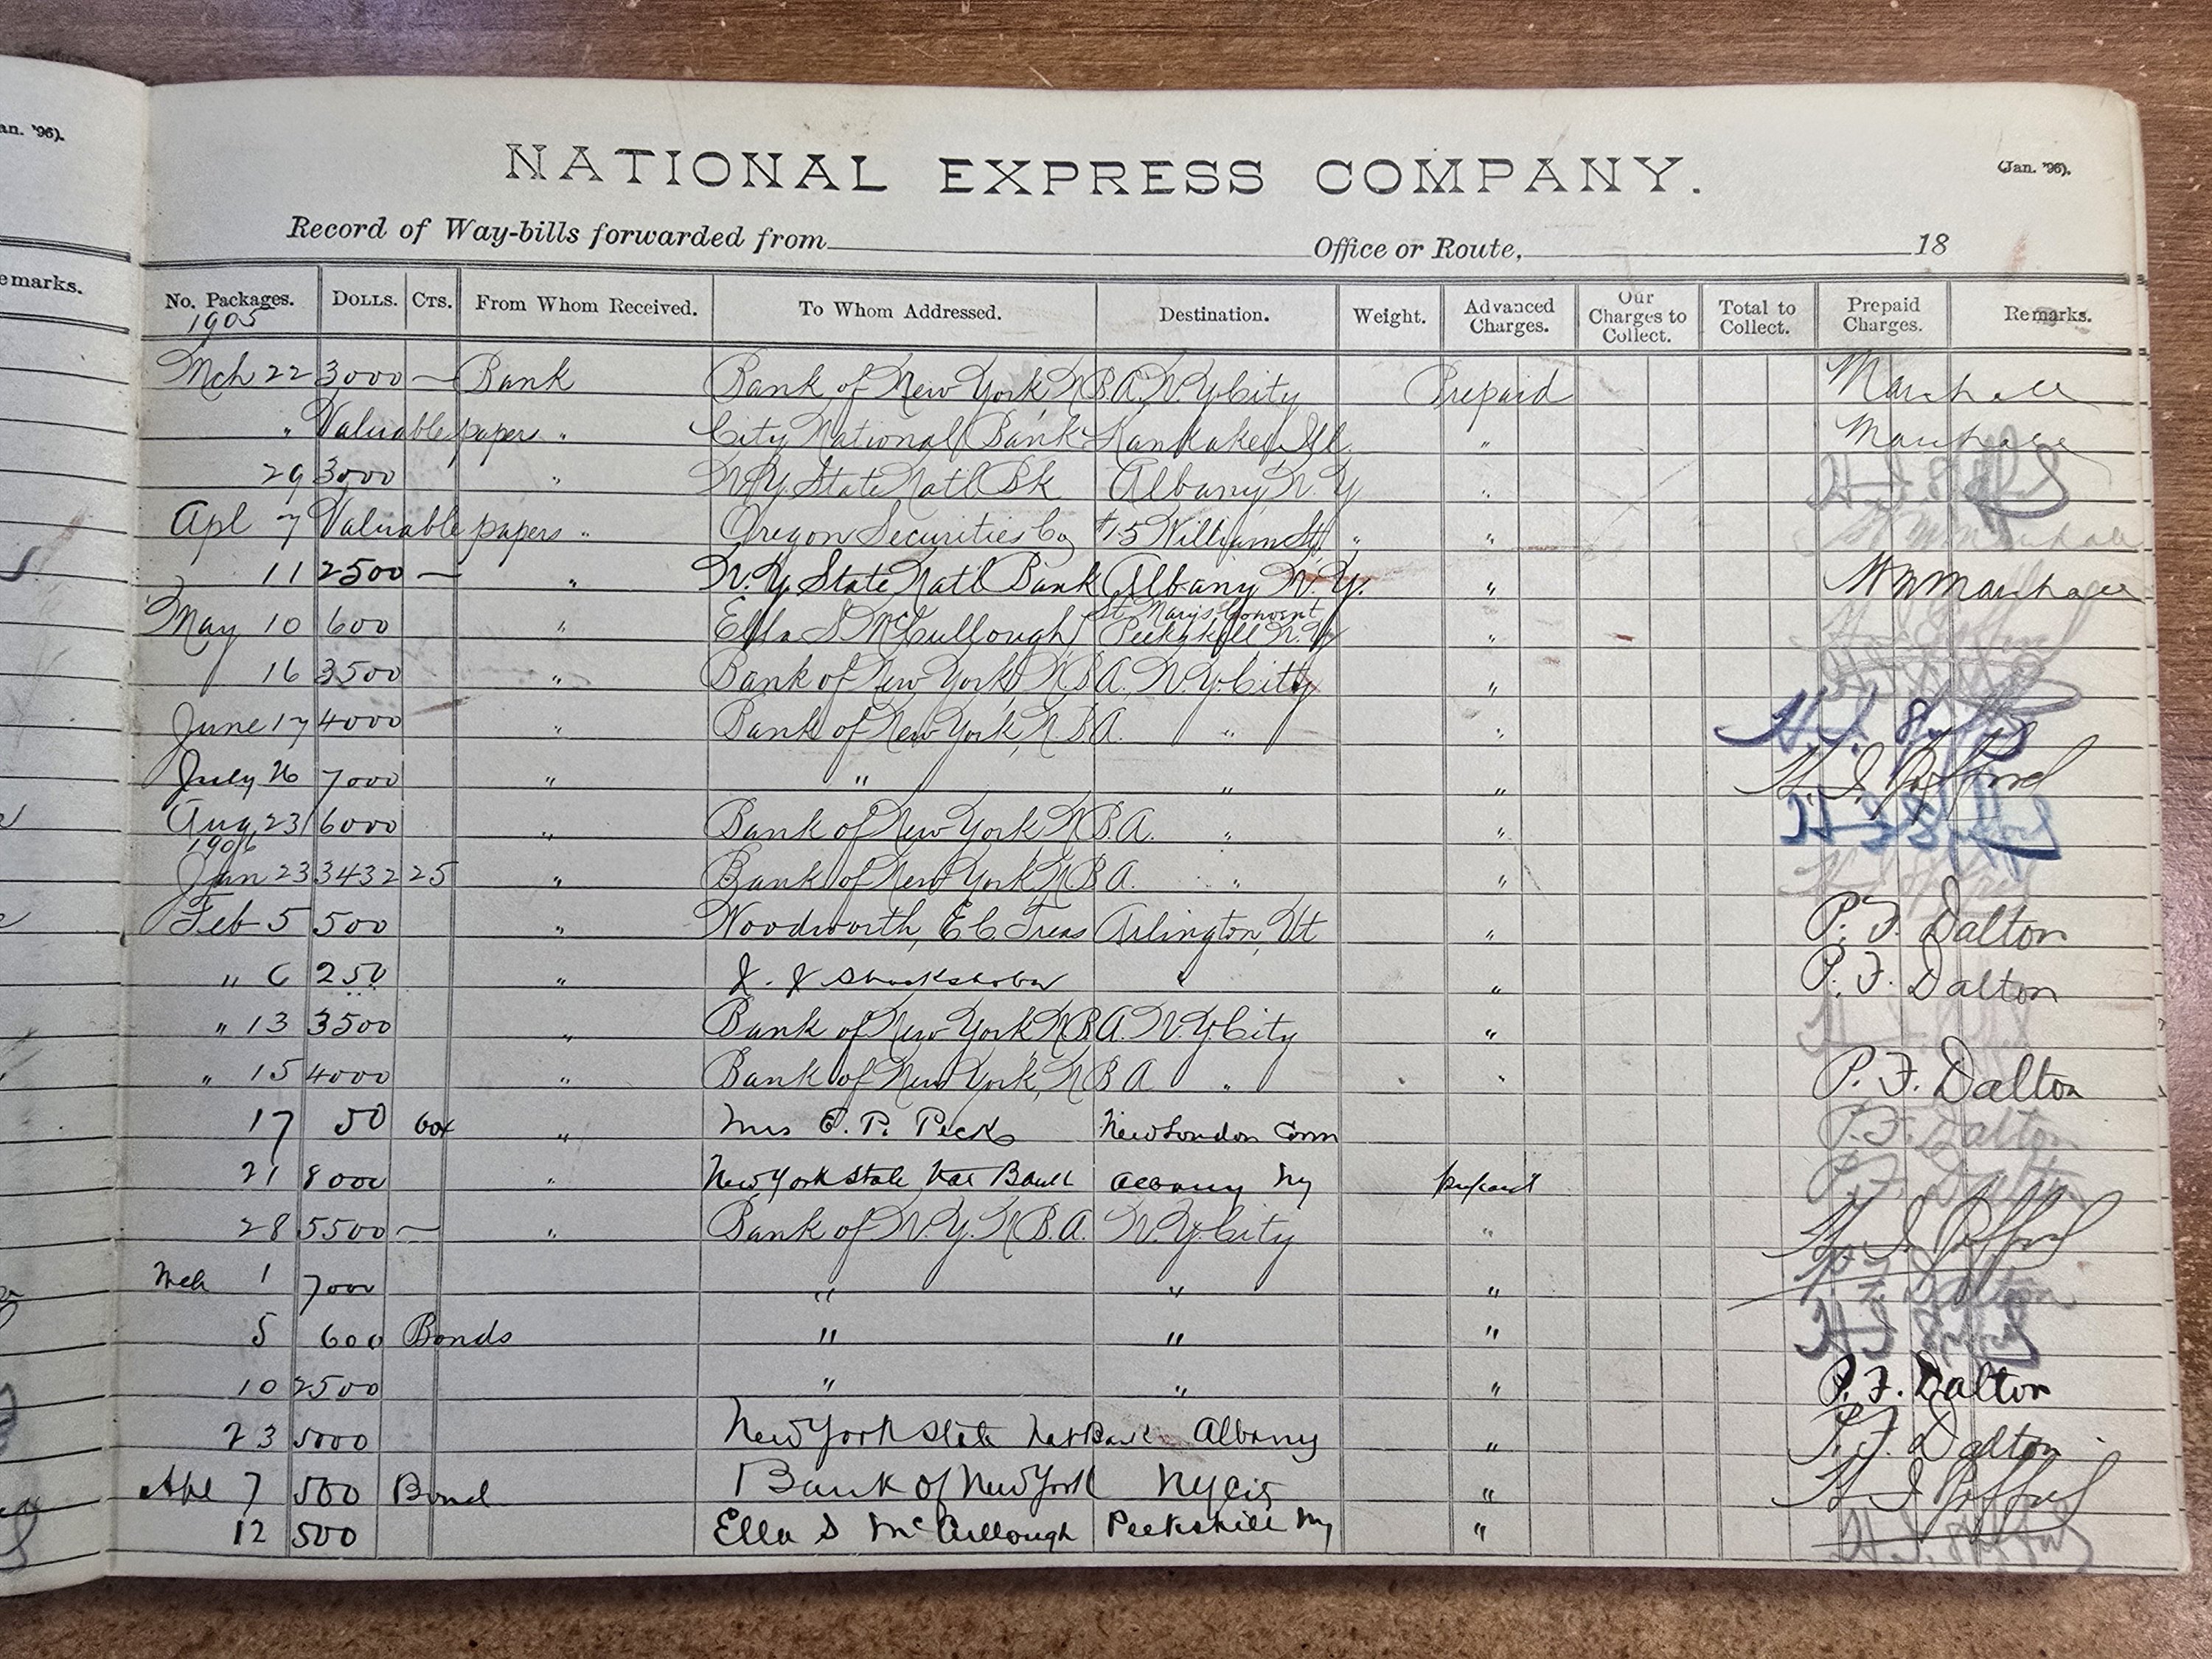 an. '96).
emarks.
NATIONAL EXPRESS COMPANY.
(Jan. '96).
Record of Way-bills forwarded from Office or Route, 18
No. Packages. DOLLS. CTS. From Whom Received. To Whom Addressed. Destination. Weight. Advanced Charges. Our Charges to Collect. Total to Collect. Prepaid Charges. Remarks.
1905
Mch 22 3000 — Bank Bank of New York, N.B.A. N.Y. City Prepaid Marshall
" Valuable papers " City National Bank Kankakee, Ill. " Marshall
29 3000 " N.Y. State Natl Bk Albany, N.Y. "
Apl 7 Valuable papers " Oregon Securities Co #15 William St, " " W M Marshall
11 2500 — " N.Y. State Natl Bank Albany N.Y. " W M Marshall
May 10 600 " Ella S McCullough St Mary's Convent Peekskill N.Y. "
16 3500 " Bank of New York, N.B.A. N.Y. City "
June 17 4000 " Bank of New York, N.B.A. " "
July 26 7000 " " " "
Aug 23 6000 " Bank of New York, N.B.A. " "
1906
Jan 23 3432 25 " Bank of New York, N.B.A. " "
Feb 5 500 " Woodworth, E C Treas Arlington, Vt " P. F. Dalton
" 6 250 " " " P. F. Dalton
" 13 3500 " Bank of New York, N.B.A. N.Y. City "
" 15 4000 " Bank of New York, N.B.A " " P. F. Dalton
17 50 " Mrs E. P. Peck New London Conn P. F. Dalton
21 8000 " New York State Nat Bank Albany Ny prepaid P. F. Dalton
28 5500 — " Bank of N.Y. N.B.A. N.Y. City "
Mch 1 7000 " " " P F Dalton
5 600 Bonds " " "
10 2500 " " " P. F. Dalton
23 5000 New York State Nat Bank Albany " P. F. Dalton
Apl 7 500 Bond Bank of New York Ny City "
12 500 Ella S McCullough Peekskill Ny "